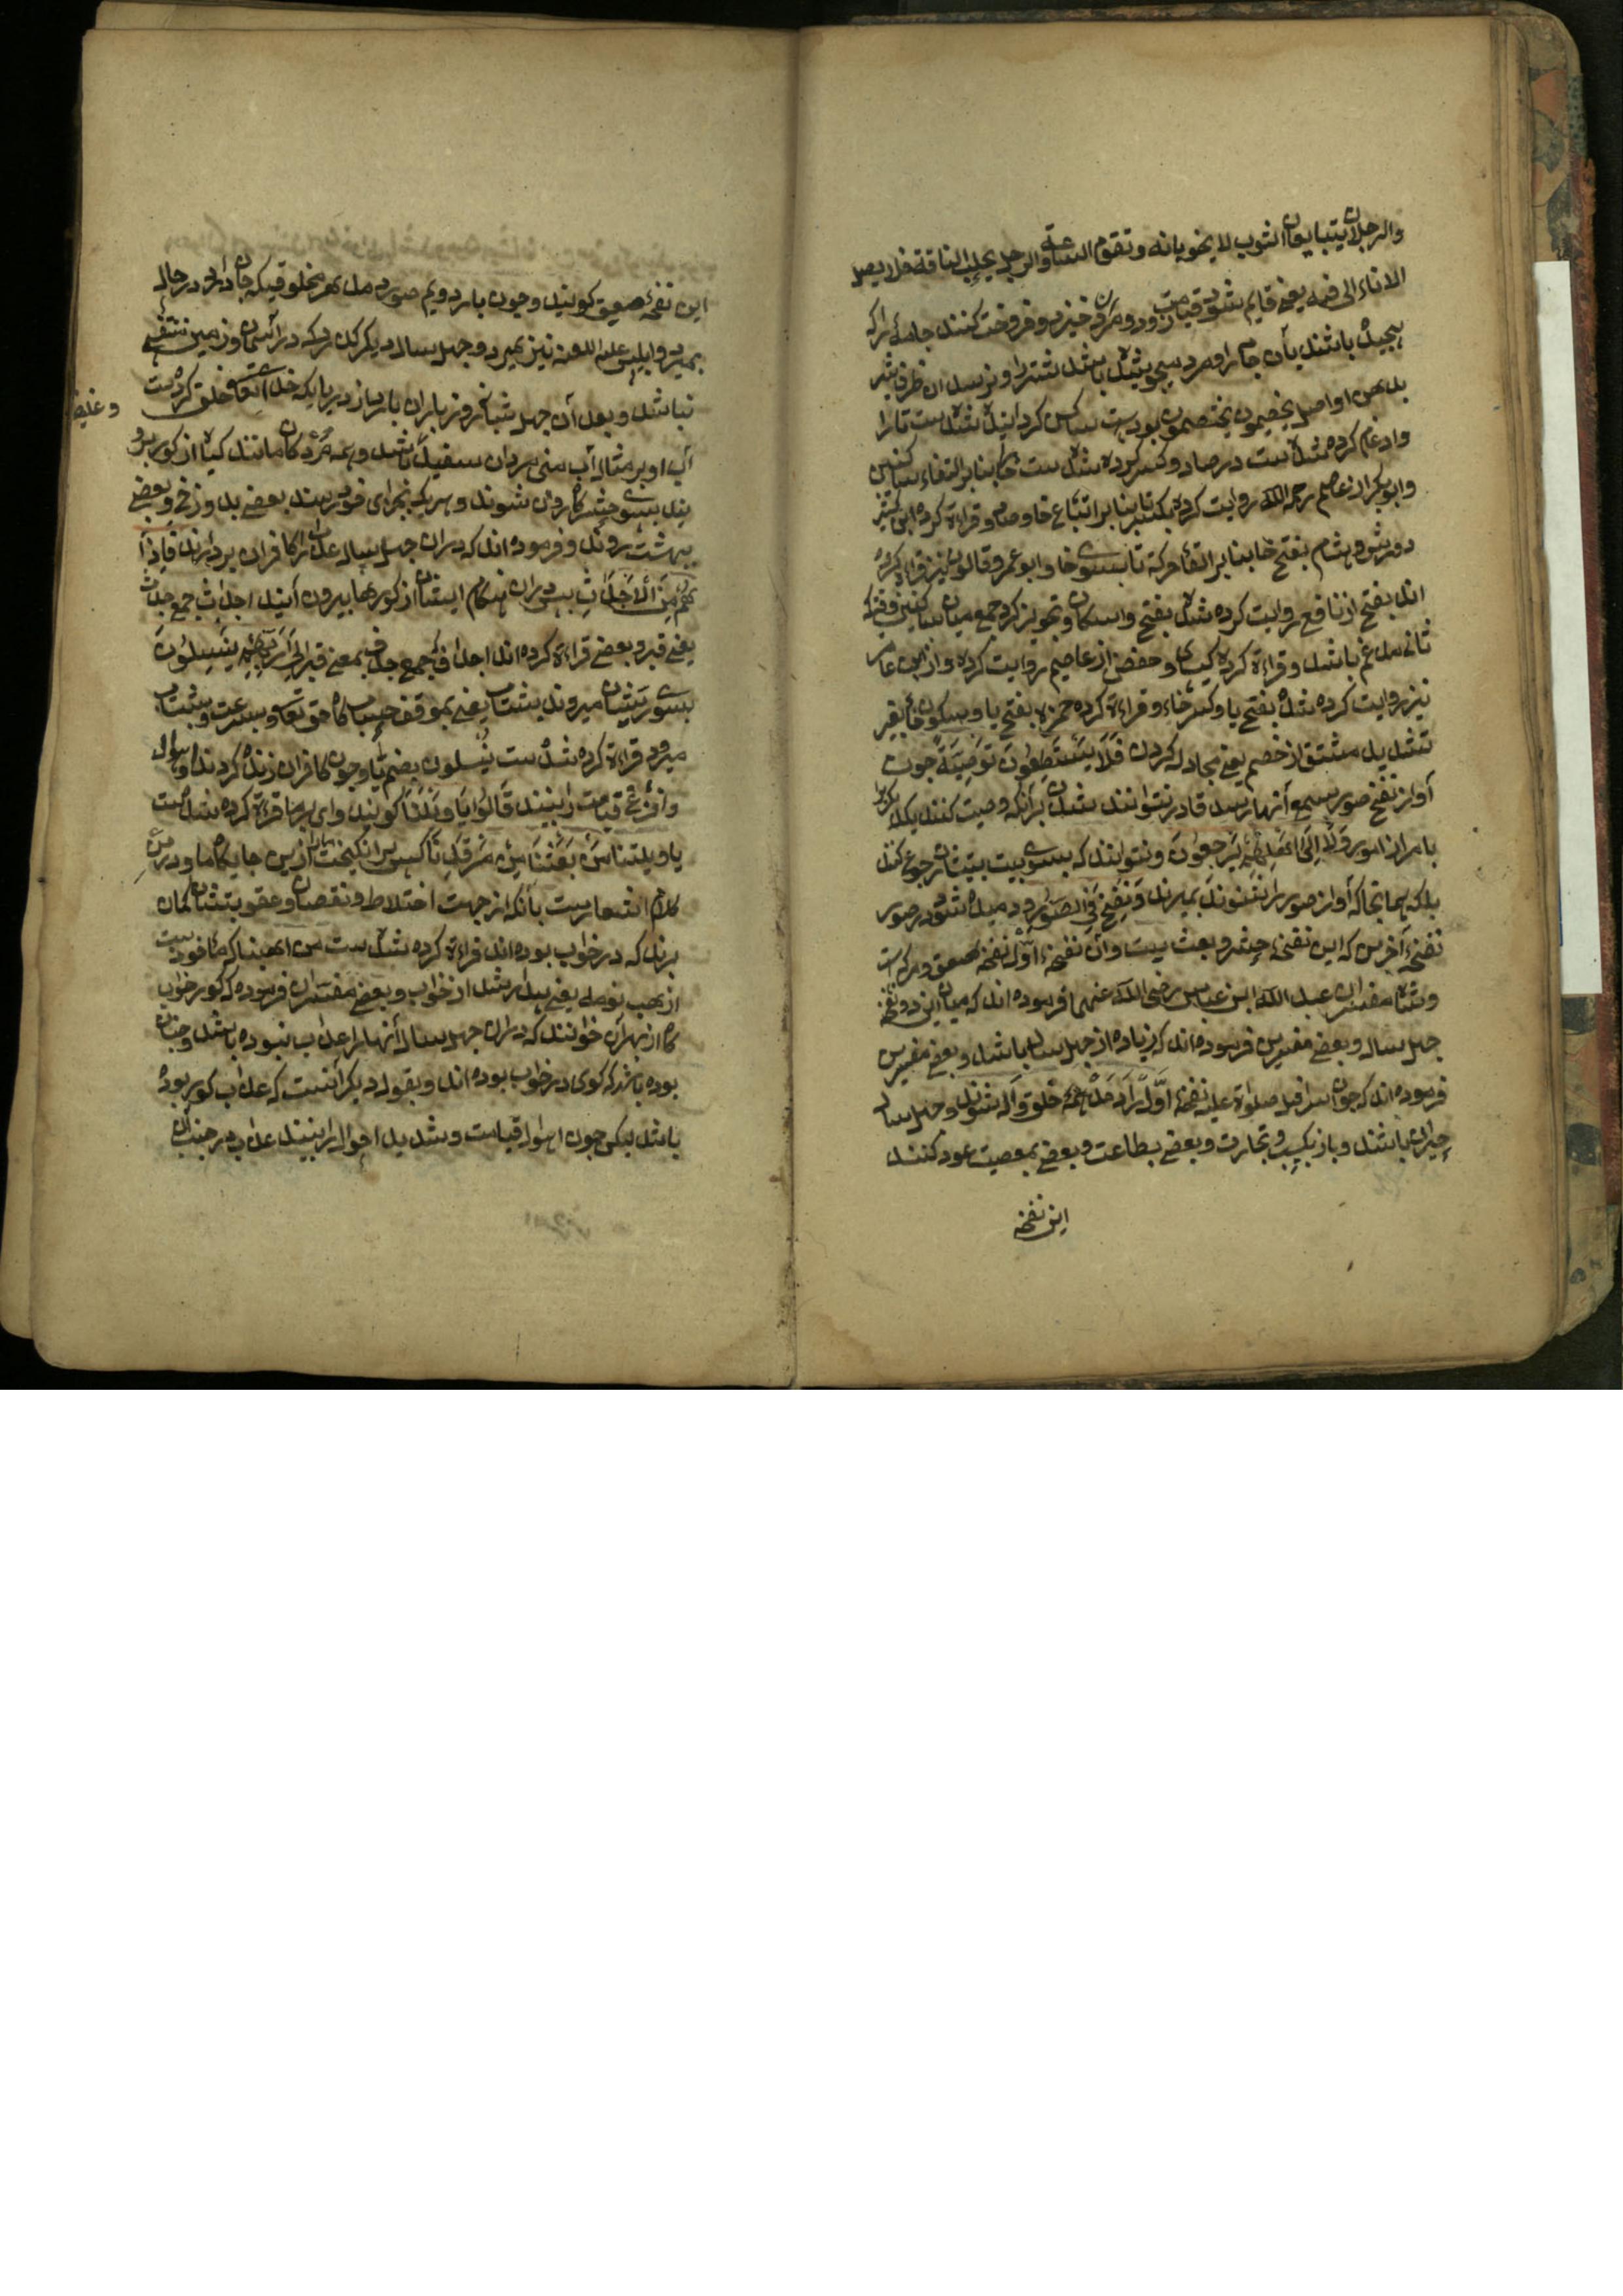 والرجلان یتبایعان الثوب لا یطویانه وتقوم الساعة والرجل یحلب الناقة فلا یصل
الاناء الی فیه یعنی قایم شود قیامت زود و مرد خیزد و فروخت کنند جامه را که
پیچیده باشند بآن جامه را و مرد دوشیده باشد شتر را و نرسد آن ظرف شیر
بدهن او اصل یخصمون یختصمون بودست ساکن کردانیده شدست تا را
وادغام کرده شدست در صاد و کسر کرده شدست خا بنابر التقاء ساکنین
وابوبکر از عاصم رحمه الله روایت کرده بکسر یا بنابر اتباع خا و قراءة کرده ابن کثیر
وورش و هشام بفتح خا بنابر القاء حرکة تا بسوی خا وابو عمرو وقالون نیز قراءة کرده
اند بفتح از نافع روایت کرده شده بفتح واسکان و تجویز کرد جمع میان ساکنین وقتیکه
ثانی مدغم باشد و قراءة کرده کسای و حفص از عاصم روایت کرده و از ابن عامر
نیز روایت کرده شده بفتح یا و کسر خاء و قراءة کرده حمزه بفتح یا و سکون خا بغیر
تشدید مشتق از خصم یعنی مجادله کردن فَلَا یَسْتَطِیعُونَ تَوْصِیَةً چون
آواز نفخ صور بسمع آنها رسد قادر نتوانند شدن برآنکه وصیت کنند یکدیگر را
بامر از امور وَلَا اِلَی اَهْلِهِمْ یَرْجِعُونَ و نتوانند که بسوی بیت بیتشان رجوع کنند
بلکه همانجا که آواز صور را بشنوند بمیرند وَنُفِخَ فِی الصُّورِ و دمیده شود در صور
نفخهٔ آخرین که این نفخهٔ حشر و بعث ست و آن نفخهٔ اوّل نفخهٔ صعق و مرکست
و شاه مفسران عبد الله ابن عباس رضی الله عنهما فرموده اند که میان این دو نفخه
چهل سال و بعضی مفسرین فرموده اند که زیاده از چهل سال باشد و بعضی مفسرین
فرموده اند که چون اسرافیل صلواة علیه نفخهٔ اوّل را دمد همه خلق واله شوند و چهل سال
حیران باشند و باز بکسب و تجارت و بعضی بطاعت و بعضی بمعصیت عود کنند
این نفخه
این نفخهٔ صعیق کویند و چون بار دویم صور دمد هر مخلوقیکه جان دارد در حال
بمیرد و ابلیس علیه اللعنه نیز بمیرد و چهل سال دیکر کذرد که در آسمان و زمین متنفسی
نباشد و بعد آن چهل شبانروز باران بارد از دریایکه خدای تعالی خلق کردست
آب او بر مثال آب منی مردان سفید باشد و همه مردکان مانند کیاه از کور برو
وغلیظ
یند بسوی حشرکاه روان شوند و هر یک بجزای خود رسند بعضی بدوزخ و بعضی
ببهشت روند و فرموده اند که دران چهل سال عذاب را از کافران بردارند فَاِذَا
هُمْ مِنَ الْاَجْدَاثِ پس دران هنکام ایشان از کورها بیرون آیند اجداث جمع جدث
یعنی قبر و بعضی قراءة کرده اند اجداف که جمع جدف بمعنی قبر اِلَی رَبِّهِمْ یَنْسِلُونَ
بسوی ربشان میروند بشتاب یعنی بموقف حسابکاه حق تعالی و بسرعت و شتاب
میرود قراءة کرده شدست ینسلون بضم یا و چون کافران زنده کردند و اهوال
و افزع قیامت را ببینند قَالُوا یَا وَیْلَنَا کویند وای بر ما قراءة کرده شدست
یا ویلتنا مَنْ بَعَثَنَا مِنْ مَرْقَدِنَا کیست برانکیخت مارا ازین جایکاه ما و درین
کلام اشعارست بآنکه از جهت اختلاط و نقصان و عقوبتشان کمان
برند که در خواب بوده اند قراءة کرده شدست من اهبنا که ماخوذست
از هب نومه یعنی بیدار شد از خواب و بعضی مفسران فرموده که کور خواب
کاه از بهر آن خوانند که دران چهل سال آنها را عذاب نبوده باشد و چنان
بوده باشد که کوی در خواب بوده اند و بقول دیکر آنست که عذاب کور بوده
باشد لیکن چون اهوال قیامت و شدید احوال را ببینند عذاب در جنب آن